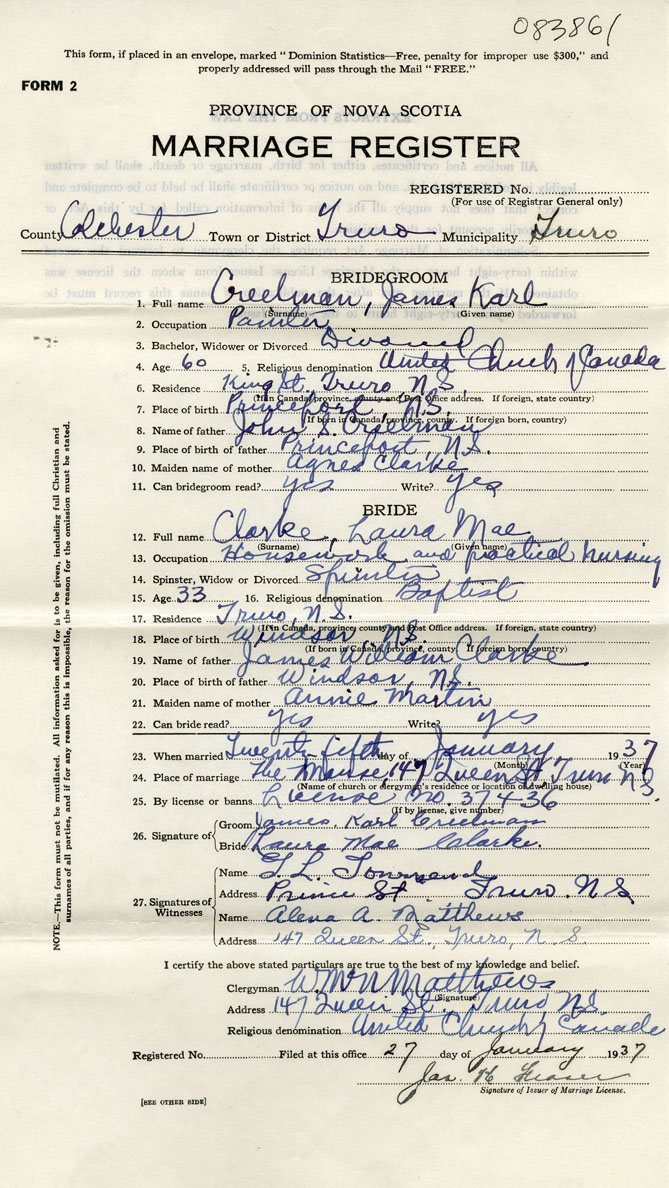 08386/
This form, if placed in an envelope, marked "Dominion Statistics—Free, penalty for improper use $300," and
properly addressed will pass through the Mail "FREE."
FORM 2
PROVINCE OF NOVA SCOTIA
MARRIAGE REGISTER
REGISTERED No.
(For use of Registrar General only)
County Colchester Town or District Truro Municipality Truro
BRIDEGROOM
1. Full name Creelman, James Karl
(Surname) (Given name)
2. Occupation Painter
3. Bachelor, Widower or Divorced Divorced
4. Age 60 5. Religious denomination United Church of Canada
6. Residence King St. Truro, N.S.
(If in Canada, province, county and Post Office address. If foreign, state country)
7. Place of birth Princeport, N.S.
(If born in Canada, province, county. If foreign born, country)
8. Name of father John S. Creelman
9. Place of birth of father Princeport, N.S.
10. Maiden name of mother Agnes Clarke
11. Can bridegroom read? yes Write? yes
BRIDE
12. Full name Clarke, Laura Mae
(Surname) (Given name)
13. Occupation Housework and practical nursing
14. Spinster, Widow or Divorced Spinster
15. Age 33 16. Religious denomination Baptist
17. Residence Truro, N.S.
(If in Canada, province, county and Post Office address. If foreign, state country)
18. Place of birth Windsor, N.S.
(If born in Canada, province, county. If foreign born, country)
19. Name of father James William Clarke
20. Place of birth of father Windsor, N.S.
21. Maiden name of mother Annie Martin
22. Can bride read? yes Write? yes
23. When married Twenty-fifth day of January 1937
(Month) (Year)
24. Place of marriage The Manse, 147 Queen St Truro N.S.
(Name of church or clergyman's residence or location of dwelling house)
25. By license or banns License No. 37436
(If by license, give number)
26. Signature of Groom James Karl Creelman
Bride Laura Mae Clarke.
27. Signatures of Witnesses
Name Townsend
Address Prince St Truro. N S
Name Alena A. Matthews
Address 147 Queen St., Truro, N. S.
I certify the above stated particulars are true to the best of my knowledge and belief.
Clergyman Matthews
(Signature)
Address 147 Queen St. Truro N.S.
Religious denomination United Church of Canada
Registered No. Filed at this office 27 day of January 1937
Jas. Fraser
Signature of Issuer of Marriage License.
[SEE OTHER SIDE]
NOTE.—This form must not be mutilated. All information asked for is to be given, including full Christian and
surnames of all parties, and if for any reason this is impossible, the reason for the omission must be stated.